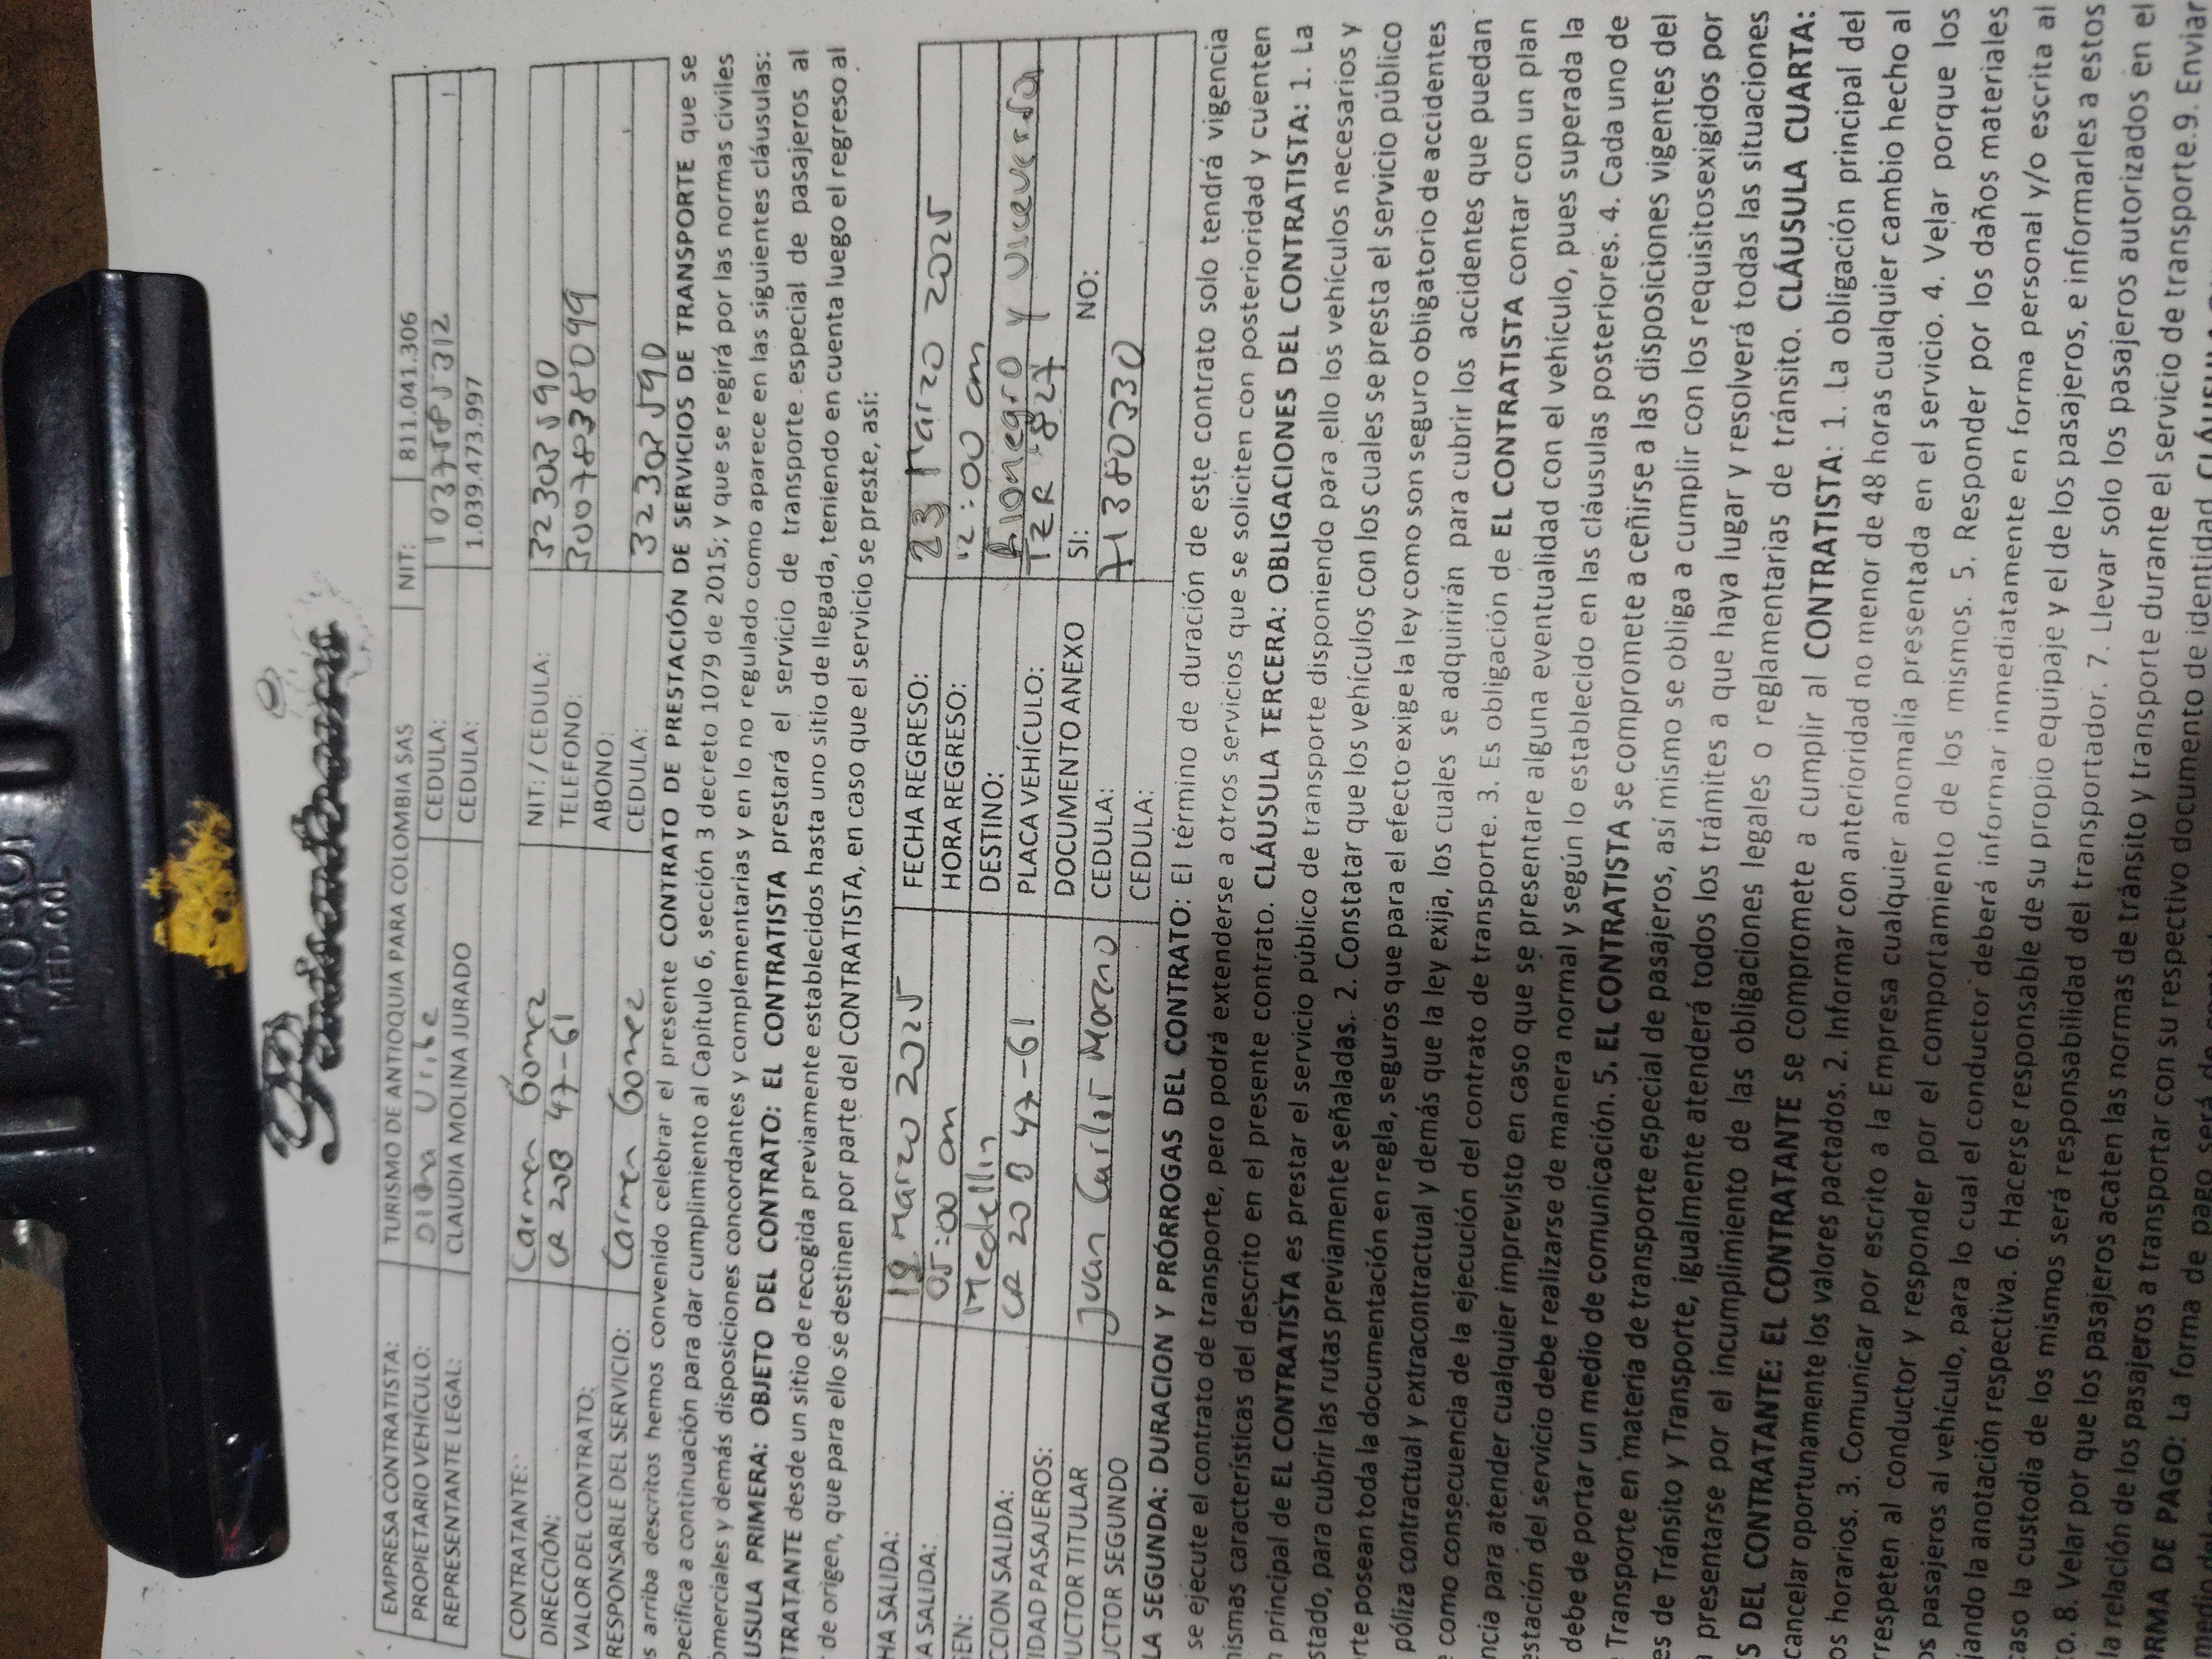 MEDCOL
EMPRESA CONTRATISTA: TURISMO DE ANTIOQUIA PARA COLOMBIA SAS NIT: 811.041.306
PROPIETARIO VEHÍCULO: Diana Uribe CEDULA:
REPRESENTANTE LEGAL: CLAUDIA MOLINA JURADO CEDULA: 1.039.473.997
CONTRATANTE: Carmen Gómez NIT: / CEDULA: 32302590
DIRECCIÓN: CR 20B 47-61 TELEFONO: 3007838099
VALOR DEL CONTRATO: ABONO:
RESPONSABLE DEL SERVICIO: Carmen Gomez CEDULA: 32302590
s arriba descritos hemos convenido celebrar el presente CONTRATO DE PRESTACIÓN DE SERVICIOS DE TRANSPORTE que se
pecifica a continuación para dar cumplimiento al Capítulo 6, sección 3 decreto 1079 de 2015; y que se regirá por las normas civiles
omerciales y demás disposiciones concordantes y complementarias y en lo no regulado como aparece en las siguientes cláusulas:
USULA PRIMERA: OBJETO DEL CONTRATO: EL CONTRATISTA prestará el servicio de transporte especial de pasajeros al
TRATANTE desde un sitio de recogida previamente establecidos hasta uno sitio de llegada, teniendo en cuenta luego el regreso al
de origen, que para ello se destinen por parte del CONTRATISTA, en caso que el servicio se preste, así:
HA SALIDA: 19 Marzo 2025 FECHA REGRESO: 23 Marzo 2025
A SALIDA: 05:00 am HORA REGRESO: 12:00 am
GEN: Medellin DESTINO: Rionegro y viceversa
CCION SALIDA: CR 20B 47-61 PLACA VEHÍCULO: TZR 827
IDAD PASAJEROS: DOCUMENTO ANEXO SI: NO:
UCTOR TITULAR Juan Carlos Moreno CEDULA: 71380330
UCTOR SEGUNDO CEDULA:
LA SEGUNDA: DURACION Y PÓRROGAS DEL CONTRATO: El término de duración de este contrato solo tendrá vigencia
se ejecute el contrato de transporte, pero podrá extenderse a otros servicios que se soliciten con posterioridad y cuenten
nismas características del descrito en el presente contrato. CLÁUSULA TERCERA: OBLIGACIONES DEL CONTRATISTA: 1. La
n principal de EL CONTRATISTA es prestar el servicio público de transporte disponiendo para ello los vehículos necesarios y
stado, para cubrir las rutas previamente señaladas. 2. Constatar que los vehículos con los cuales se presta el servicio público
rte posean toda la documentación en regla, seguros que para el efecto exige la ley como son seguro obligatorio de accidentes
póliza contractual y extracontractual y demás que la ley exija, los cuales se adquirirán para cubrir los accidentes que puedan
e como consecuencia de la ejecución del contrato de transporte. 3. Es obligación de EL CONTRATISTA contar con un plan
ncia para atender cualquier imprevisto en caso que se presentare alguna eventualidad con el vehículo, pues superada la
estación del servicio debe realizarse de manera normal y según lo establecido en las cláusulas posteriores. 4. Cada uno de
debe de portar un medio de comunicación. 5. EL CONTRATISTA se compromete a ceñirse a las disposiciones vigentes del
Transporte en materia de transporte especial de pasajeros, así mismo se obliga a cumplir con los requisitosexigidos por
es de Tránsito y Transporte, igualmente atenderá todos los trámites a que haya lugar y resolverá todas las situaciones
presentarse por el incumplimiento de las obligaciones legales o reglamentarias de tránsito. CLÁUSULA CUARTA:
S DEL CONTRATANTE: EL CONTRATANTE se compromete a cumplir al CONTRATISTA: 1. La obligación principal del
cancelar oportunamente los valores pactados. 2. Informar con anterioridad no menor de 48 horas cualquier cambio hecho al
os horarios. 3. Comunicar por escrito a la Empresa cualquier anomalía presentada en el servicio. 4. Velar porque los
respeten al conductor y responder por el comportamiento de los mismos. 5. Responder por los daños materiales
os pasajeros al vehículo, para lo cual el conductor deberá informar inmediatamente en forma personal y/o escrita al
jando la anotación respectiva. 6. Hacerse responsable de su propio equipaje y el de los pasajeros, e informarles a estos
caso la custodia de los mismos será responsabilidad del transportador. 7. Llevar solo los pasajeros autorizados en el
o. 8. Velar por que los pasajeros acaten las normas de tránsito y transporte durante el servicio de transporte. 9. Enviar
la relación de los pasajeros a transportar con su respectivo documento de identidad.
RMA DE PAGO: La forma de pago será de